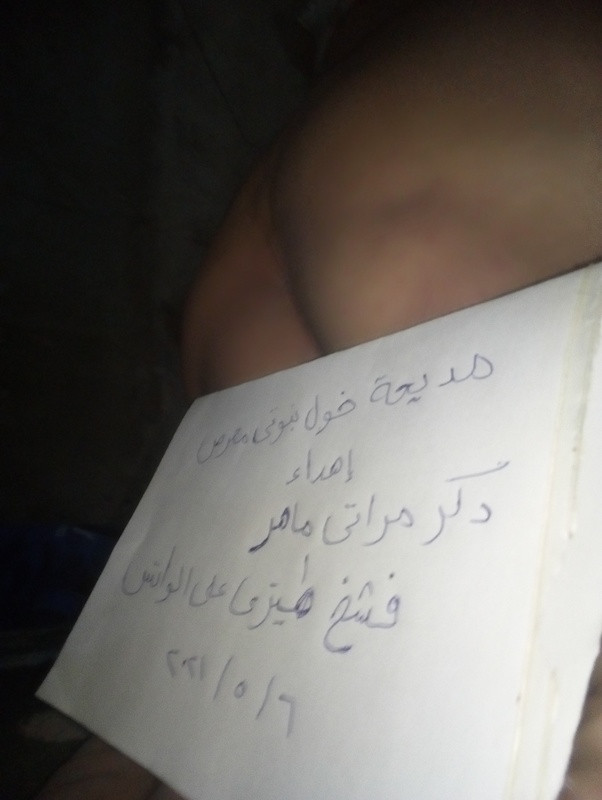 مديحة خول نبوتى معرص
إهداء
دكر مراتى ماهر
فشخ طيزى على الواتس
٢٠٢١/٥/٦